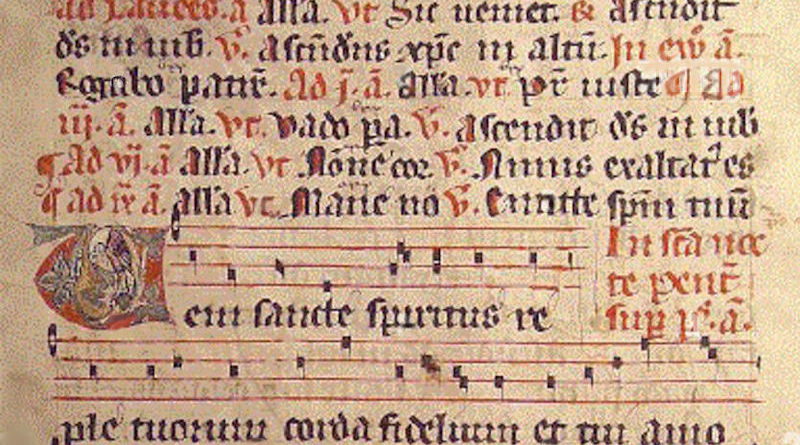 ad Laudes. a alla. vt Sic ueniet. & ascendit
ds in iub. v. ascendens xpc in altū. In ew a.
Rogabo patrē. Ad j. a. alla. vt pr iuste ad
iij. a. alla. vt. vado pa. v. ascendit ds in iub
Ad vj. a alla. vt Nōne cor v. Nimis exaltat es
ad ix a. alla vt. Mane no v. Emitte spm tuū
Veni sancte spiritus re
In sancte
te pent
sup ps. a.
ple tuorum corda fidelium et tui amo